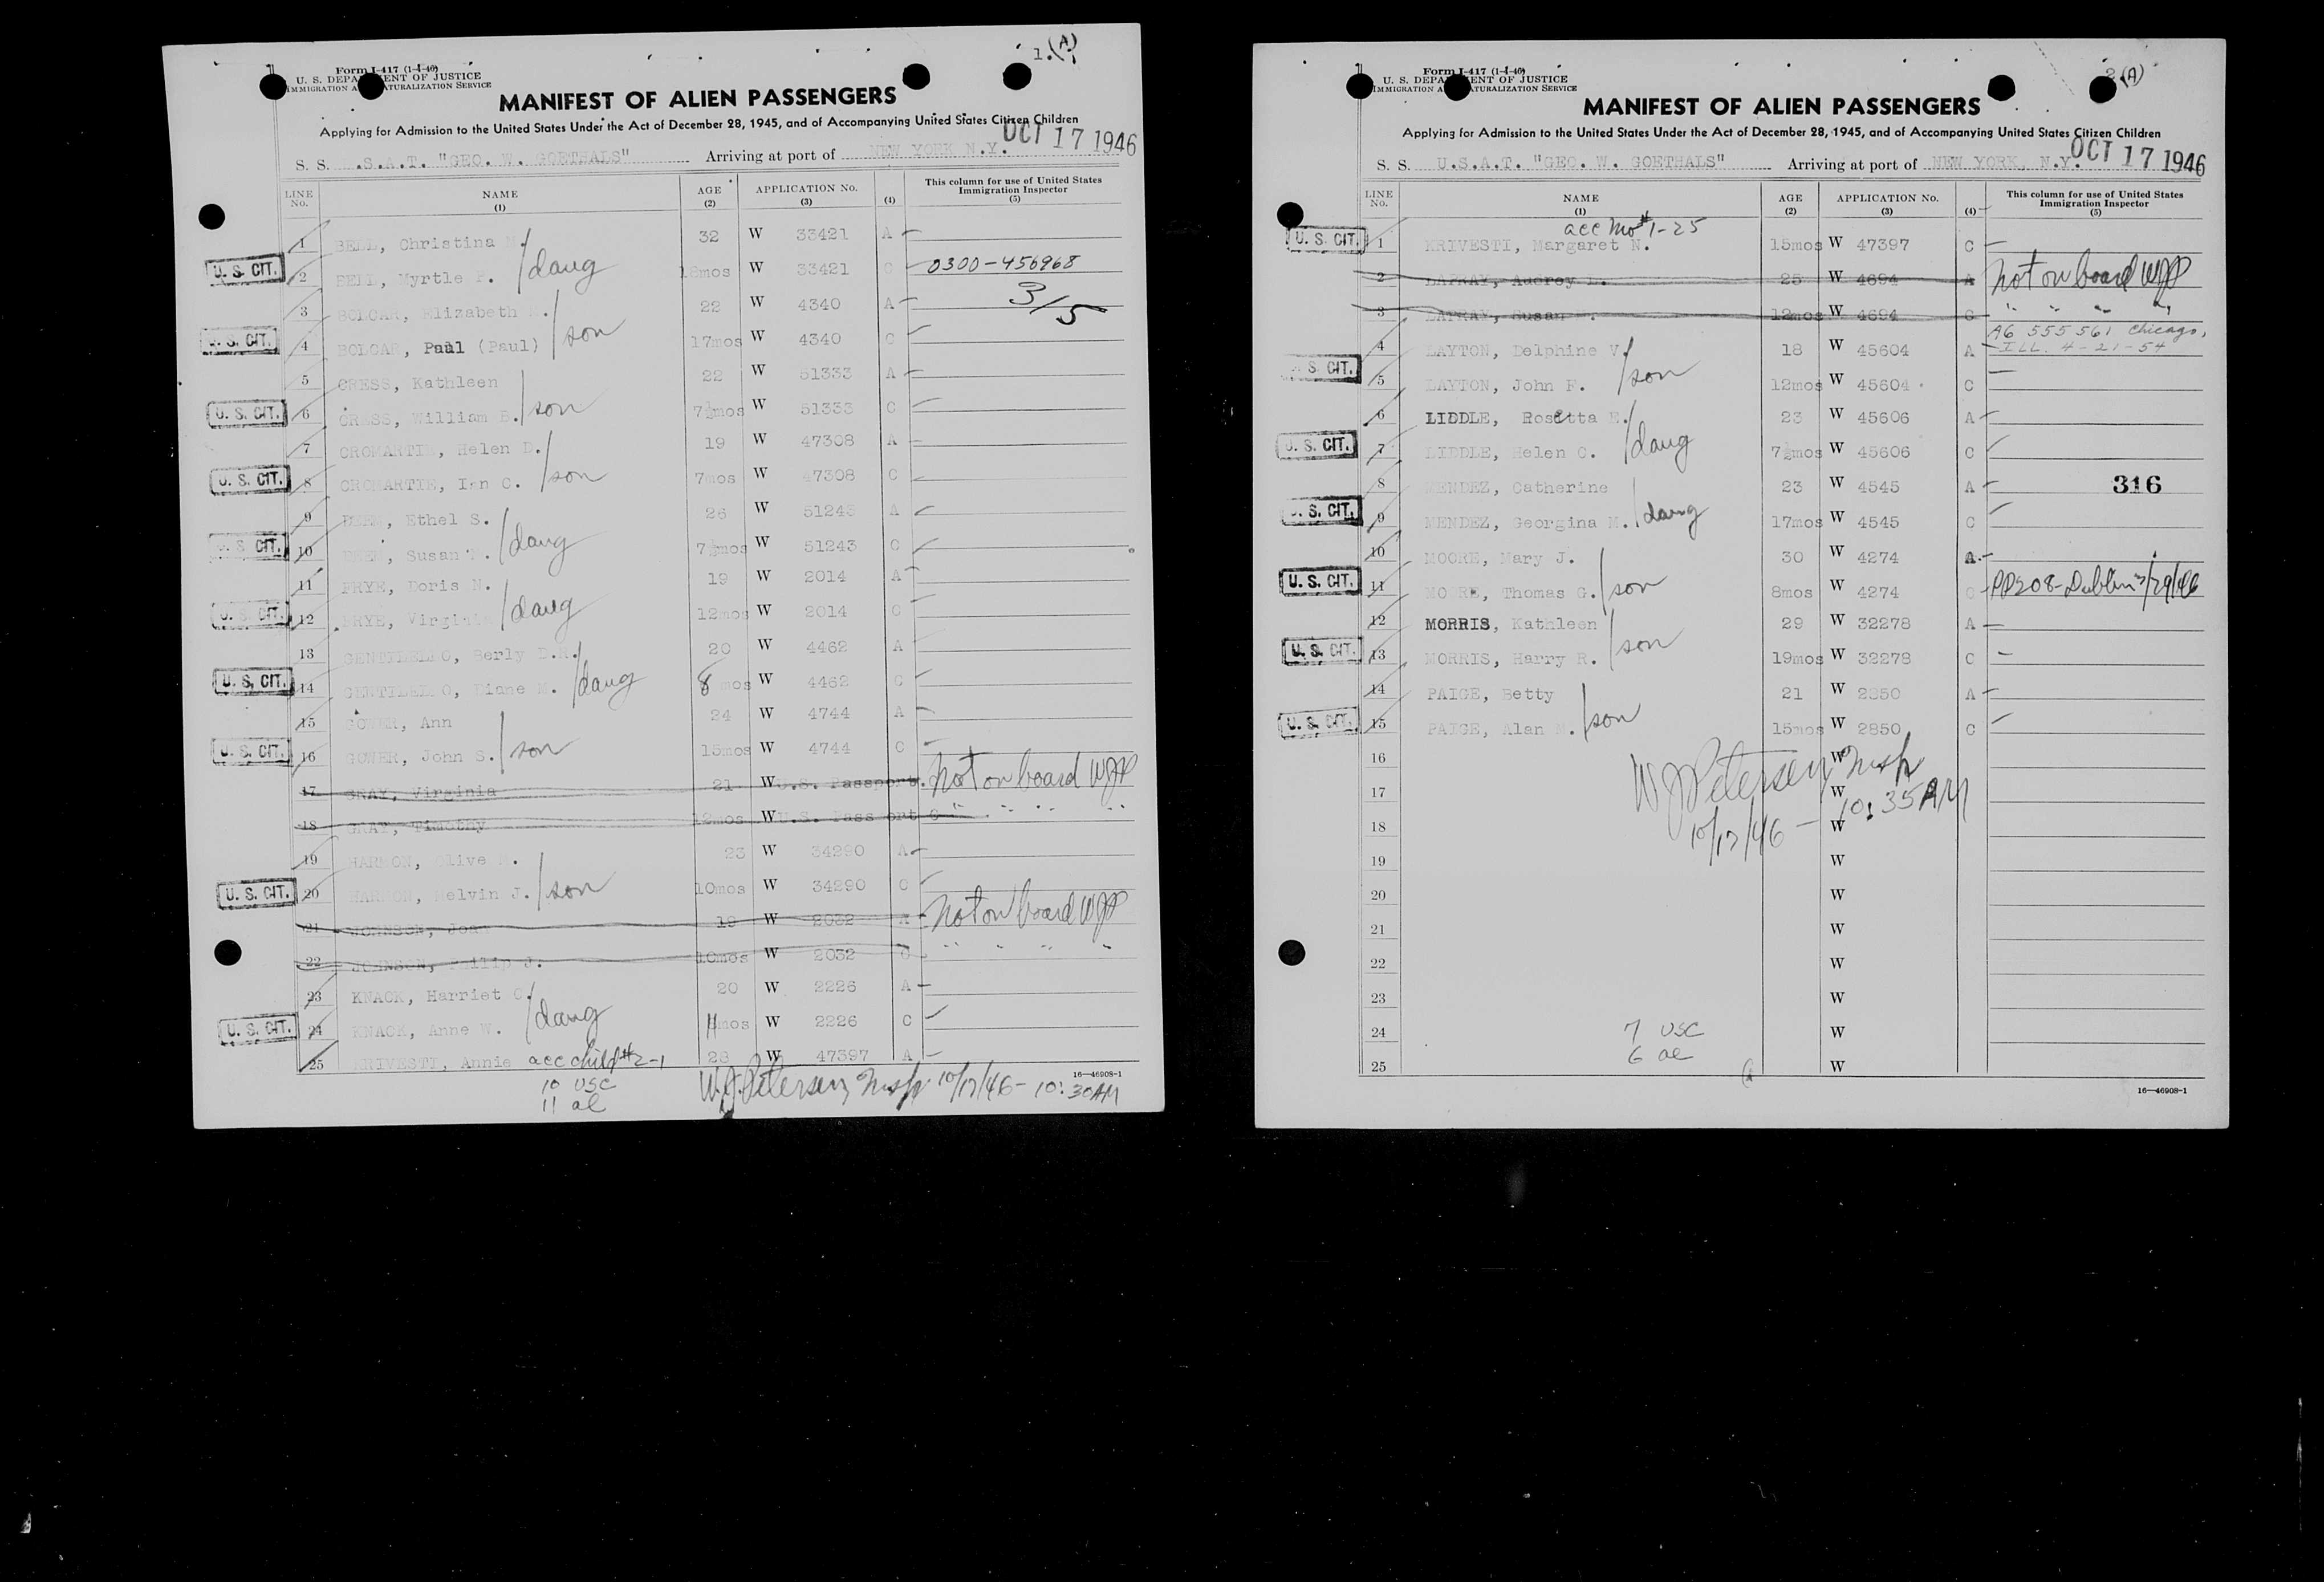 1.(A)
Form I-417 (1-4-46)
U. S. DEPARTMENT OF JUSTICE
IMMIGRATION AND NATURALIZATION SERVICE
MANIFEST OF ALIEN PASSENGERS
Applying for Admission to the United States Under the Act of December 28, 1945, and of Accompanying United States Citizen Children
S. S. .S.A.T. "GEO. W. GOETHALS" Arriving at port of NEW YORK N.Y. OCT 17 1946
LINE No. NAME (1) AGE (2) APPLICATION No. (3) (4) This column for use of United States Immigration Inspector (5)
1 BELL, Christina 32 W 33421 A
U. S. CIT. 2 BELL, Myrtle daug mos W 33421 C 0300-456968
3 BOLCAR, Elizabeth 22 W 4340 A 3/5
U. S. CIT. 4 BOLCAR, Paul (Paul) son 17mos W 4340 C
5 CRESS, Kathleen 22 W 51333 A
U. S. CIT. 6 CRESS, William B. son 7½mos W 51333 C
7 CROMARTIE, Helen D. 19 W 47308 A
U. S. CIT. 8 CROMARTIE, Ian C. son 7mos W 47308 C
9 Ethel S. 26 W 51243 A
U. S. CIT. 10 Susan daug 7½mos W 51243 C
11 FRYE, Doris N. 19 W 2014 A
U. S. CIT. 12 FRYE, Virginia daug 12mos W 2014 C
13 GENTILELLO, Berly D.R. 20 W 4462 A
U. S. CIT. 14 GENTILELLO, Diane M. daug 8 mos W 4462 C
15 GOWER, Ann 24 W 4744 A
U. S. CIT. 16 GOWER, John S. son 15mos W 4744 C
17 GRAY, Virginia 21 W U.S. Passport. Not on board WJP
18 GRAY, Timothy 12mos W U.S. Passport C " " " "
19 HARMON, Olive 23 W 34290 A
U. S. CIT. 20 HARMON, Melvin J. son 10mos W 34290 C
21 JOHNSON, Joan 19 W 2032 A Not on board WJP
22 JOHNSON, Philip J. 10mos W 2032 C " " " "
23 KNACK, Harriet C. 20 W 2226 A
U. S. CIT. 24 KNACK, Anne W. daug 11mos W 2226 C
25 KRIVESTI, Annie acc child #2-1 28 W 47397 A
10 USC
11 al
W.J. Petersen Insp. 10/17/46 - 10:30AM
16—46908-1
2(A)
Form I-417 (1-4-46)
U. S. DEPARTMENT OF JUSTICE
IMMIGRATION AND NATURALIZATION SERVICE
MANIFEST OF ALIEN PASSENGERS
Applying for Admission to the United States Under the Act of December 28, 1945, and of Accompanying United States Citizen Children
S. S. U.S.A.T. "GEO. W. GOETHALS" Arriving at port of NEW YORK, N.Y. OCT 17 1946
LINE No. NAME (1) AGE (2) APPLICATION No. (3) (4) This column for use of United States Immigration Inspector (5)
acc Mo #1-25
U. S. CIT. 1 KRIVESTI, Margaret N. 15mos W 47397 C
2 LAFRAY, Audrey L. 25 W 4694 A Not on board WJP
3 LAFRAY, Susan 12mos W 4694 C " " " "
A6 555 561 Chicago,
4 LAYTON, Delphine V. 18 W 45604 A ILL 4-21-54
U. S. CIT. 5 LAYTON, John F. son 12mos W 45604 C
6 LIDDLE, Rosetta E. 23 W 45606 A
U. S. CIT. 7 LIDDLE, Helen C. daug 7½mos W 45606 C
8 MENDEZ, Catherine 23 W 4545 A 316
U. S. CIT. 9 MENDEZ, Georgina M. daug 17mos W 4545 C
10 MOORE, Mary J. 30 W 4274 A
U. S. CIT. 11 MOORE, Thomas G. son 8mos W 4274 C PP208-Dublin 7/29/46
12 MORRIS, Kathleen 29 W 32278 A
U. S. CIT. 13 MORRIS, Harry R. son 19mos W 32278 C
14 PAIGE, Betty 21 W 2850 A
U. S. CIT. 15 PAIGE, Alan M. son 15mos W 2850 C
16 W
W J Petersen Insp
17 W
10/17/46 - 10:35AM
18 W
19 W
20 W
21 W
22 W
23 W
24 7 USC W
6 al
25 W
16—46908-1